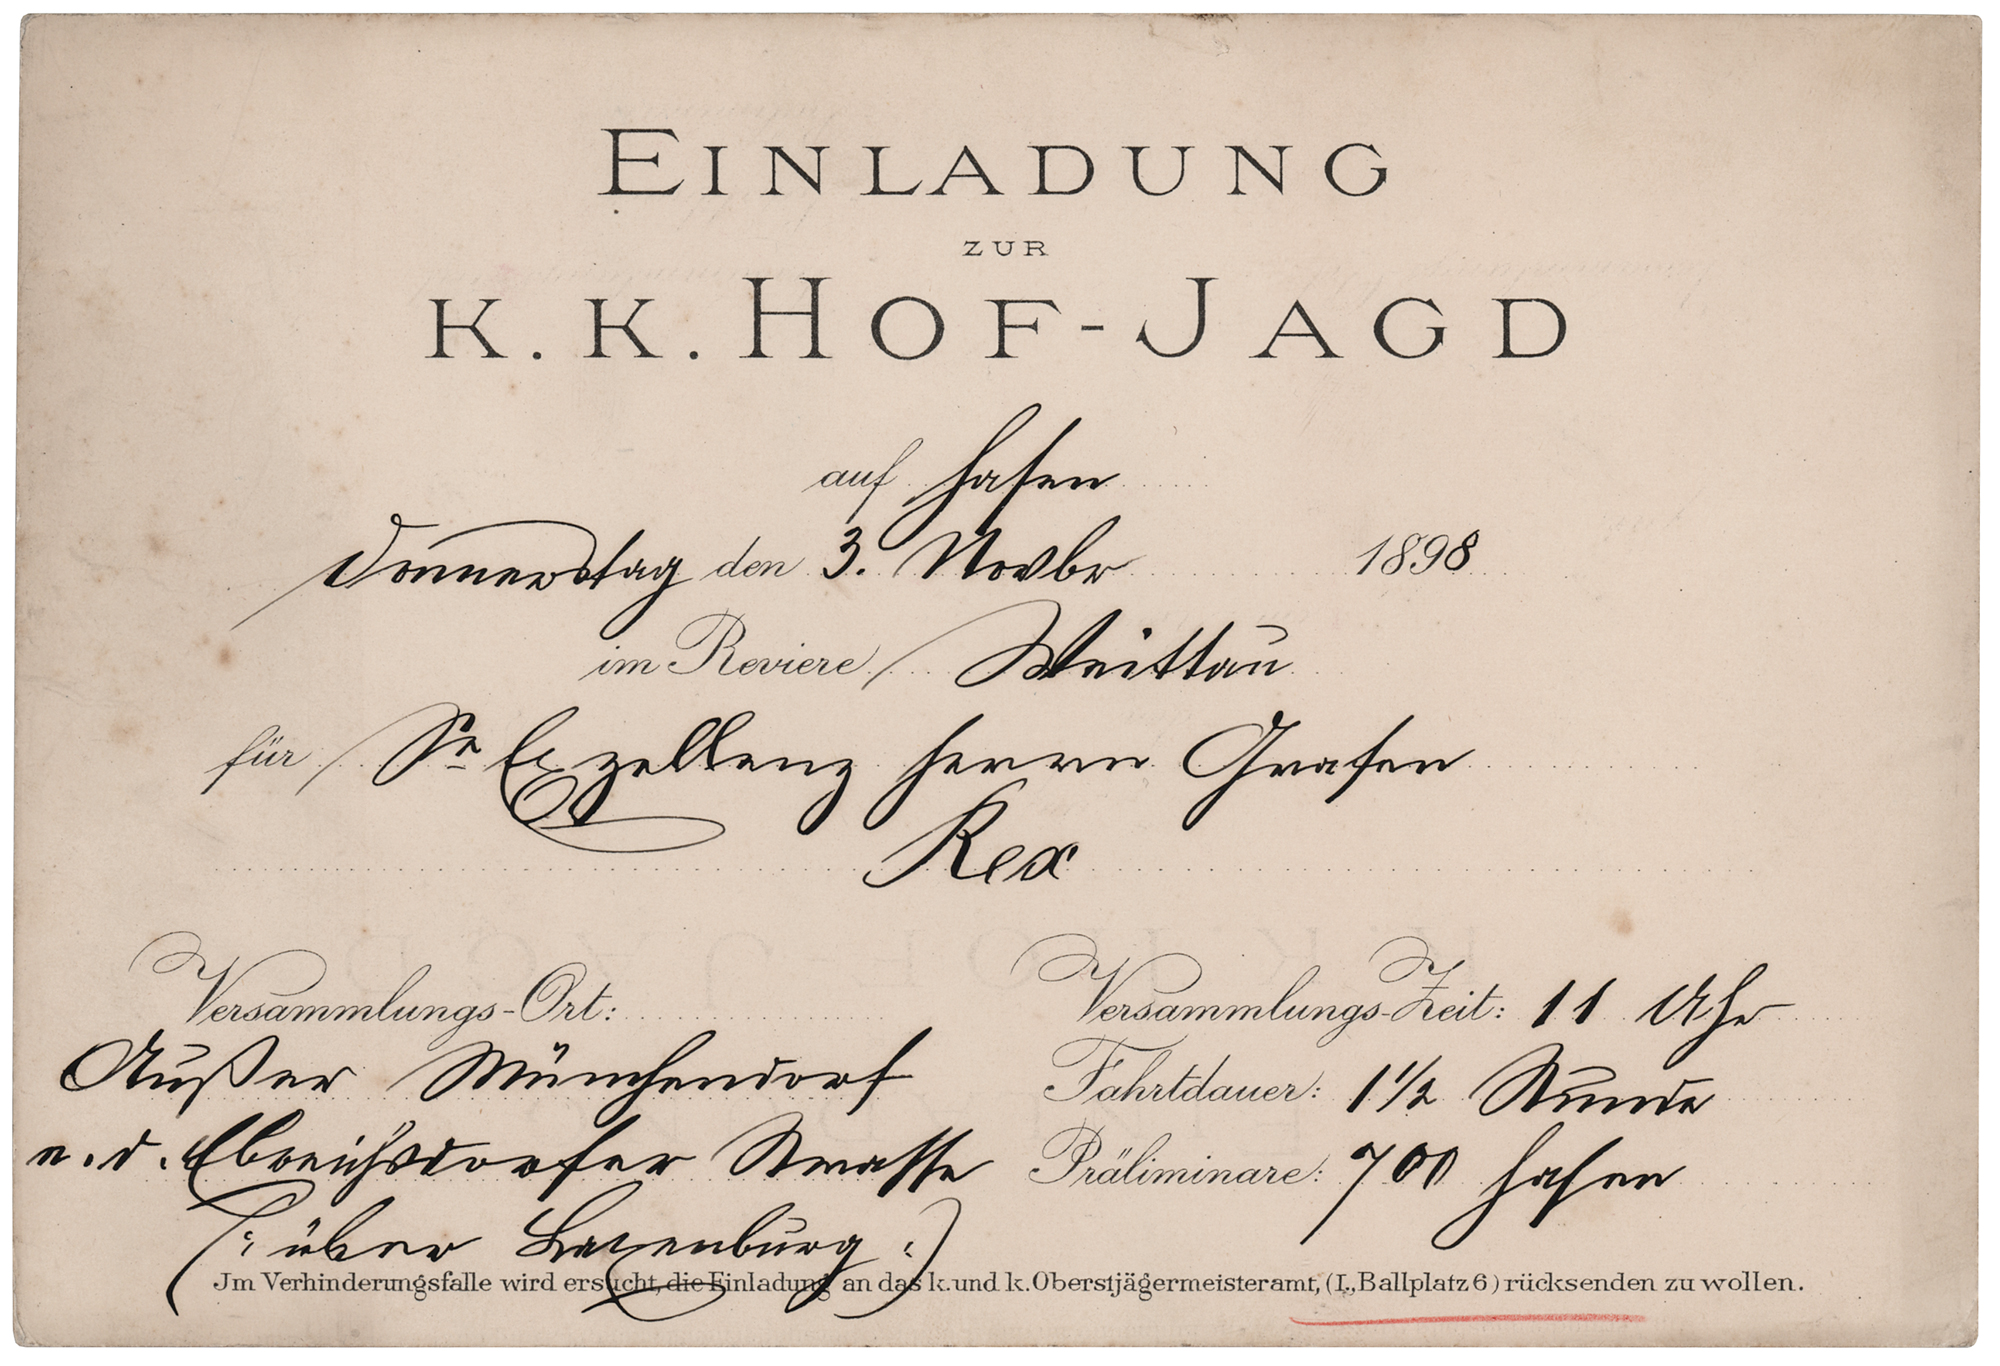 EINLADUNG
ZUR
K. K. HOF-JAGD
auf Hasen
Donnerstag den 3. Novbr 1898
im Reviere
für Sr Exzellenz Herrn Grafen
Rex
Versammlungs-Ort:
Außer Münchendorf
a. d. Ebreichsdorfer Strasse
(: über Laxenburg :)
Versammlungs-Zeit: 11 Uhr
Fahrtdauer: 1 1/2 Stunde
Präliminare: 700 Hasen
Jm Verhinderungsfalle wird ersucht, die Einladung an das k. und k. Oberstjägermeisteramt, (I., Ballplatz 6) rücksenden zu wollen.